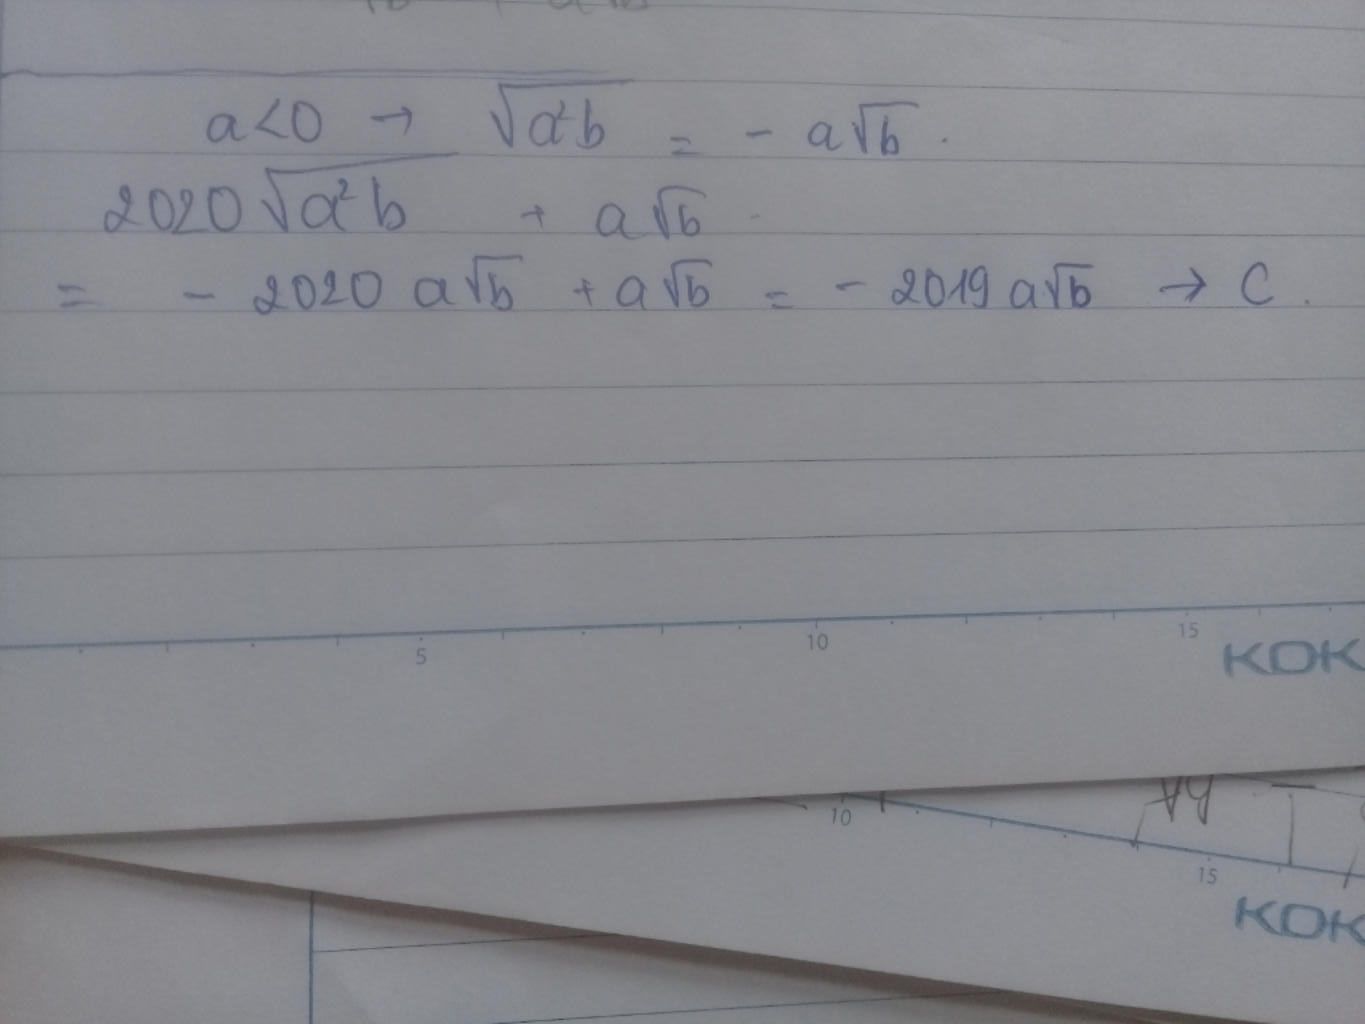 a<0 → √a²b = - a√b.
2020√a²b + a√b
= - 2020 a√b + a√b = - 2019 a√b → C.
5 10 15
KOK
10 15
KOK